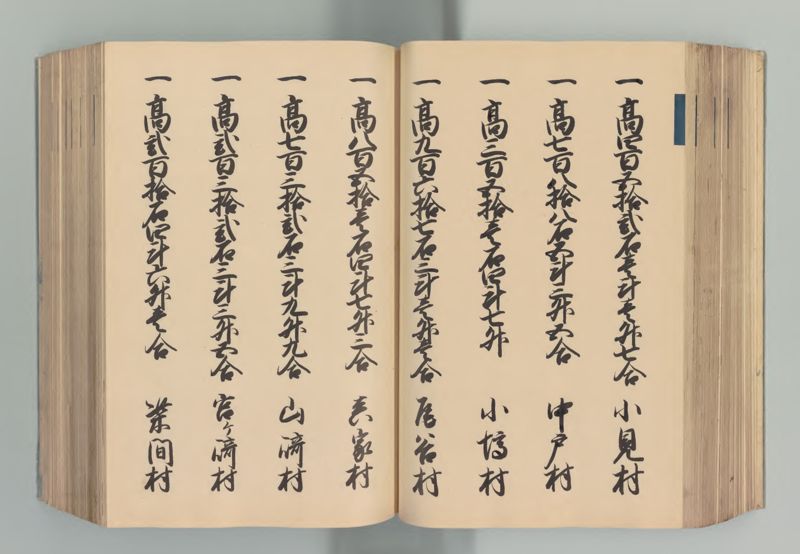 一 高四百五拾弐石壱斗壱升七合 小見村
一 高七百八拾八石五斗二升五合 中戸村
一 高三百五拾壱石四斗七升 小塙村
一 高九百六拾七石二斗壱升壱合 谷村
一 高八百五拾壱石四斗七升三合 真家村
一 高七百三拾弐石三斗九升九合 山崎村
一 高弐百三拾弐石三斗三升五合 宮ヶ崎村
一 高弐百拾石四斗六升壱合 間村